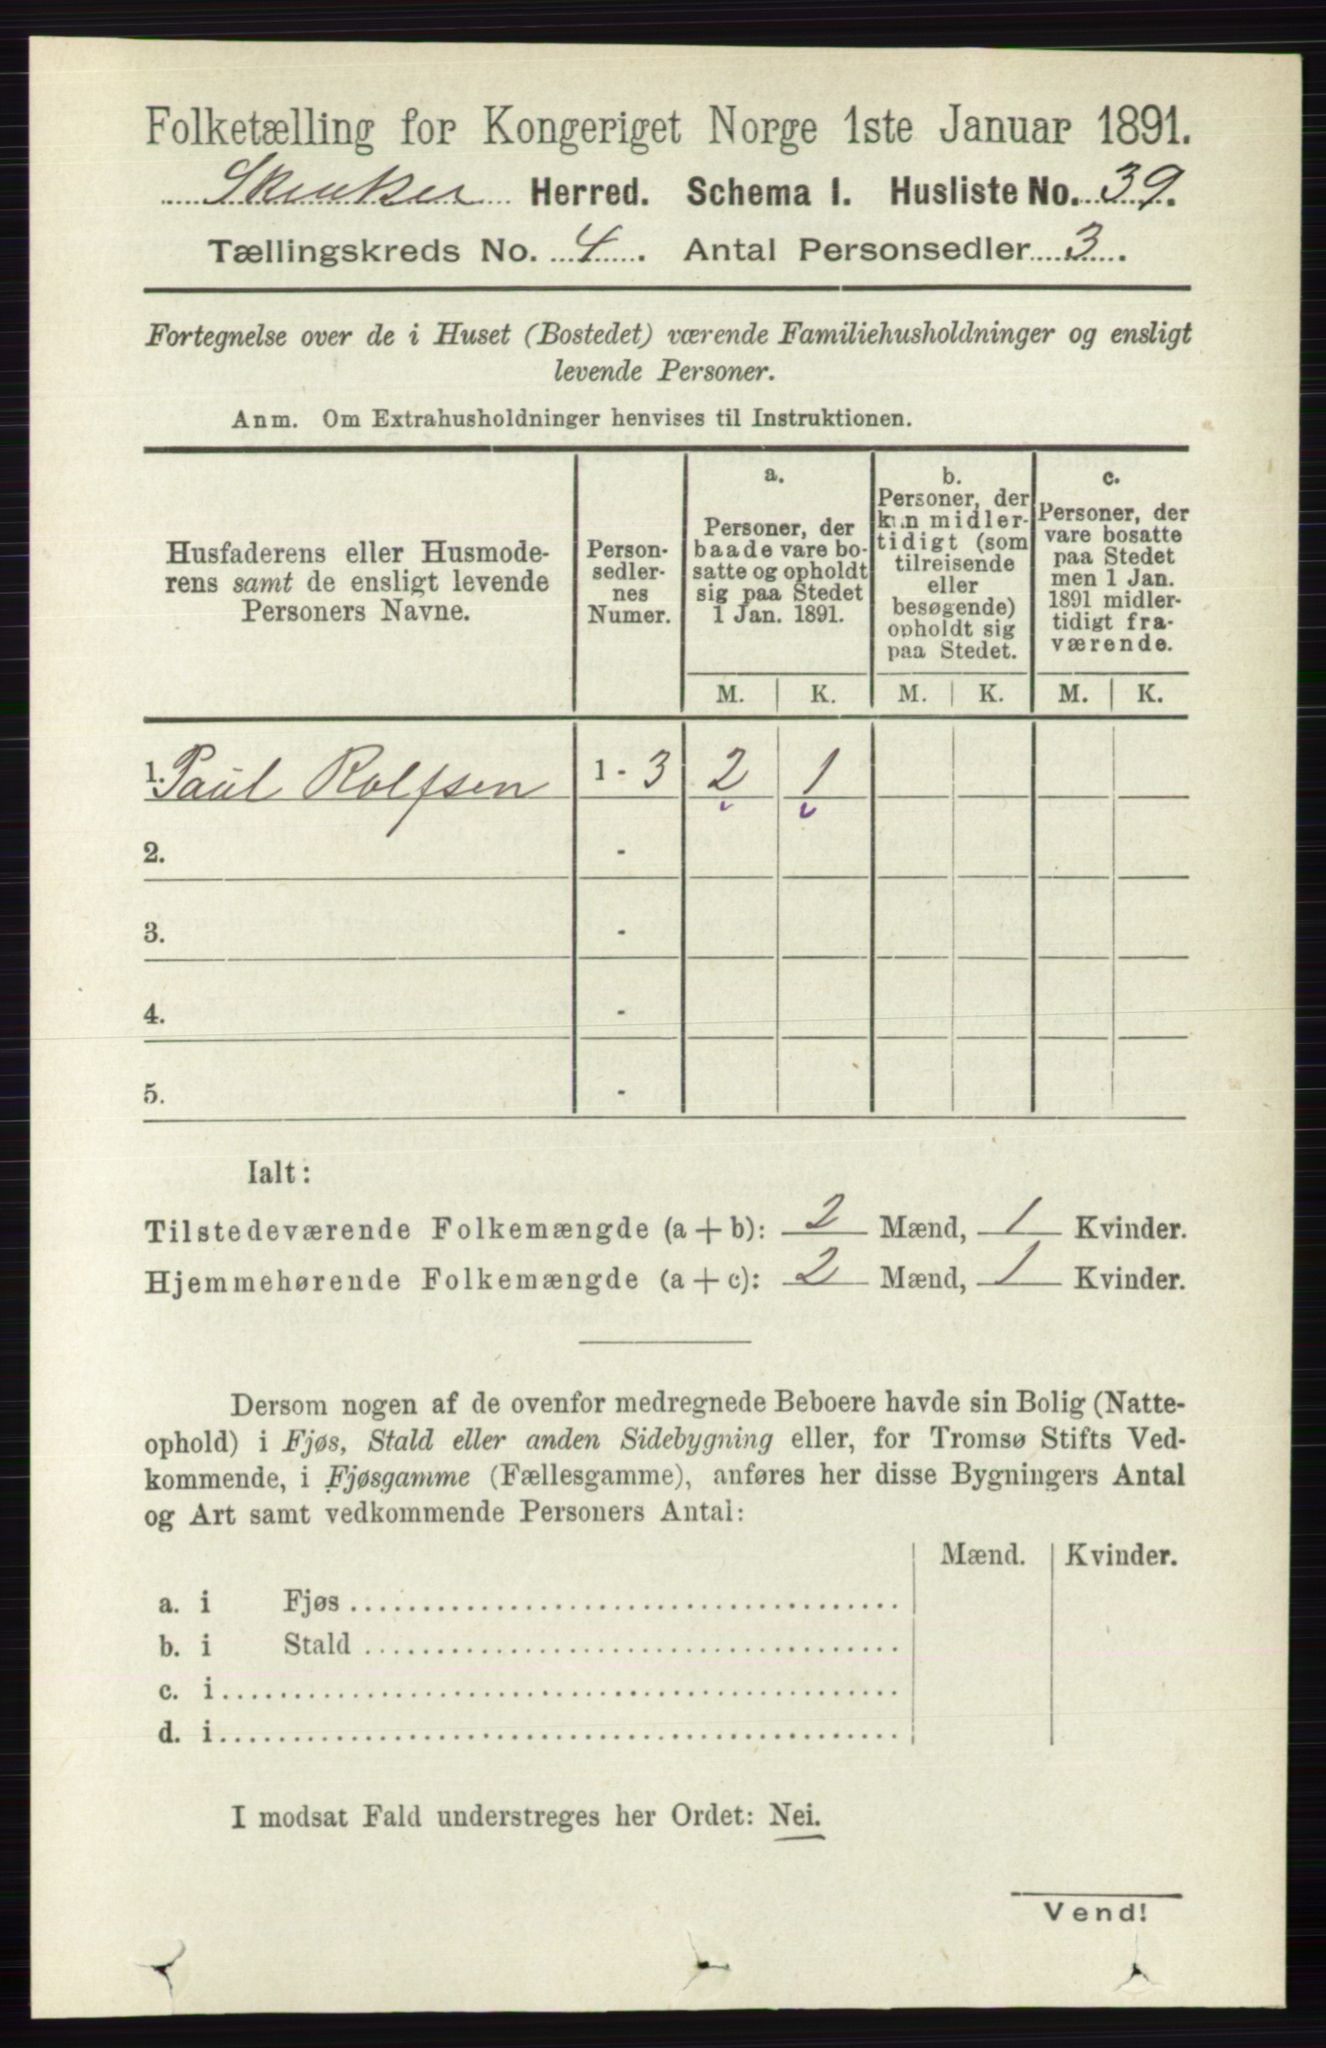 Folketælling for Kongeriget Norge 1ste Januar 1891.
Skeuker Herred. Schema 1. Husliste No. 39.
Tællingskreds No. 4. Antal Personsedler 3.
Fortegnelse over de i Huset (Bostedet) værende Familiehusholdninger og ensligt
levende Personer.
Anm. Om Extrahusholdninger henvises til Instruktionen.
Husfaderens eller Husmode-
rens samt de ensligt levende
Personers Navne.
Person-
sedler-
nes
Numer.
a.
Personer, der
baade vare bo-
satte og opholdt
sig paa Stedet
1 Jan. 1891.
b.
Personer, der
kun midler-
tidigt (som
tilreisende
eller
besøgende)
opholdt sig
paa Stedet.
c.
Personer, der
vare bosatte
paa Stedet
men 1 Jan.
1891 midler-
tidigt fra-
værende.
M. K. M. K. M. K.
1. Paul Rolfsen 1 - 3 2 1
2. -
3. -
4. -
5. -
Ialt:
Tilstedeværende Folkemængde (a + b): 2 Mænd, 1 Kvinder.
Hjemmehørende Folkemængde (a + c): 2 Mænd, 1 Kvinder.
Dersom nogen af de ovenfor medregnede Beboere havde sin Bolig (Natte-
ophold) i Fjøs, Stald eller anden Sidebygning eller, for Tromsø Stifts Ved-
kommende, i Fjøsgamme (Fællesgamme), anføres her disse Bygningers Antal
og Art samt vedkommende Personers Antal:
Mænd. Kvinder.
a. i Fjøs
b. i Stald
c. i
d. i
I modsat Fald understreges her Ordet: Nei.
Vend!